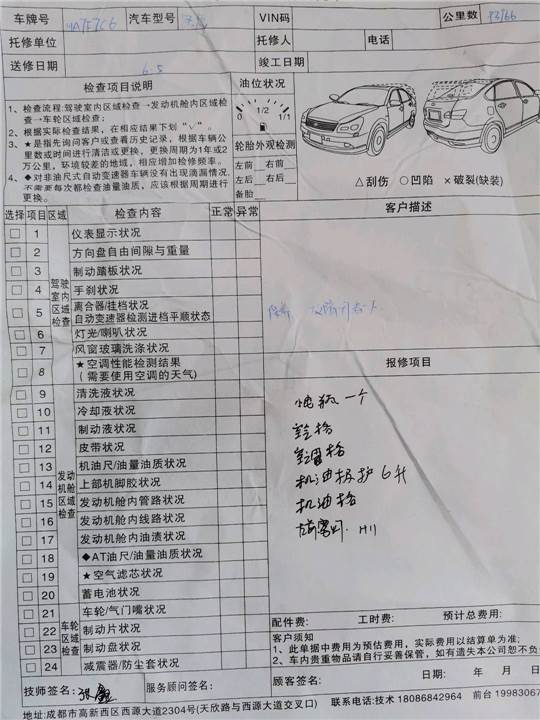 车牌号 汽车型号 VIN码 公里数
托修单位 托修人 电话
送修日期 6.5 竣工日期
检查项目说明 油位状况
1、检查流程:驾驶室内区域检查→发动机舱内区域检
查→车轮区域检查;
2、根据实际检查结果，在相应结果下划“√”。
3、★是指先询问客户或查看历史记录，根据车辆公
里数或时间进行清洁或更换，更换周期为1年或2
万公里，环境较差的地域，相应增加检修频率。
4、◆对非油尺式自动变速器车辆没有出现滴漏情况，
不需要每次都检查油量油质，应该根据周期进行
更换。
0 1/2 1/1
轮胎外观检测
左前 右前
左后 右后
备胎
△刮伤 ○凹陷 ×破裂(缺装)
选择 项目 区域 检查内容 正常 异常 客户描述
驾驶室内区域检查
1 仪表显示状况
2 方向盘自由间隙与重量
3 制动踏板状况
4 手刹状况
5 离合器/挂档状况
自动变速器检测进档平顺状态
6 灯光/喇叭状况
7 风窗玻璃洗涤状况
8 ★空调性能检测结果
(需要使用空调的天气)
报修项目
发动机舱区域检查
9 清洗液状况
10 冷却液状况
11 制动液状况
12 皮带状况
13 机油尺/油量油质状况
14 上部机脚胶状况
15 发动机舱内管路状况
16 发动机舱内线路状况
17 发动机舱内油渍状况
18 ◆AT油尺/油量油质状况
19 ★空气滤芯状况
20 蓄电池状况
电瓶一个
空格
空调格
机油极护 6升
机油格
车轮区域检查
21 车轮/气门嘴状况
22 制动片状况
23 制动盘状况
24 减震器/防尘套状况
配件费: 工时费: 预计总费用:
客户须知
1、此单据中费用为预估费用，实际费用以结算单为准;
2、车内贵重物品请自行妥善保管，如有遗失本公司恕不负
技师签名: 服务顾问签名: 顾客签名: 日期: 年 月 日
地址:成都市高新西区西源大道2304号(天欣路与西源大道交叉口) 联系电话:技术 18086842964 前台 19983067